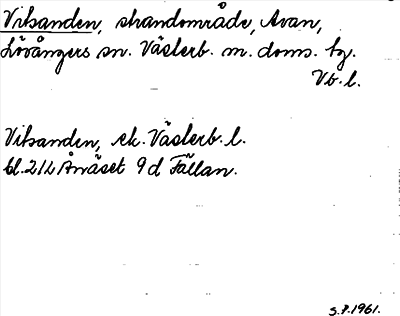 Vitsanden, strandområde, Avan,
Lövångers sn. Västerb. m. doms. tg.
Vb. l.
Vitsanden, ek. Västerb. l.
bl. 21L Ånäset 9d Fällan.
S.P. 1961.